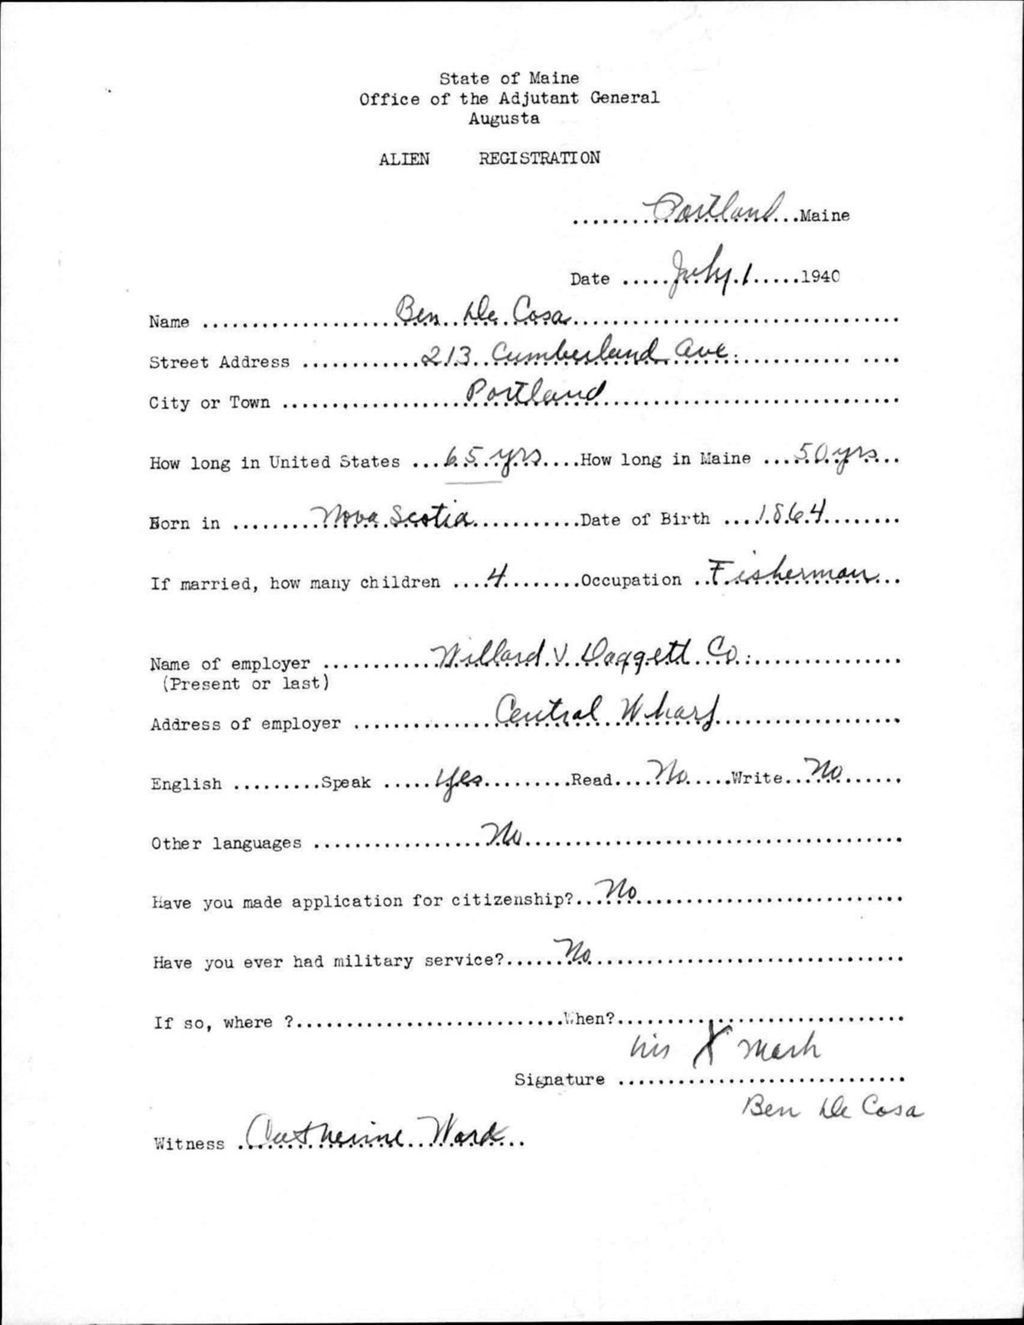 State of Maine
Office of the Adjutant General
Augusta
ALIEN REGISTRATION
........Portland...Maine
Date .....July.1......1940
Name ...................Ben De Cosa..............................
Street Address ............213 Cumberland Ave.............. ....
City or Town ..................Portland............................
How long in United States ...65 yrs....How long in Maine ...50 yrs...
Born in ........Nova Scotia...........Date of Birth ...1864........
If married, how many children ...4........Occupation ..Fisherman...
Name of employer ...........Willard V. Daggett Co..............
(Present or last)
Address of employer ..............Central Wharf..................
English .........Speak .....Yes.........Read....No.....Write..No......
Other languages .................No......................................
Have you made application for citizenship?...No..........................
Have you ever had military service?......No..............................
If so, where ?..........................When?............................
his X mark
Signature .............................
Ben De Cosa
Witness .Catherine Ward..